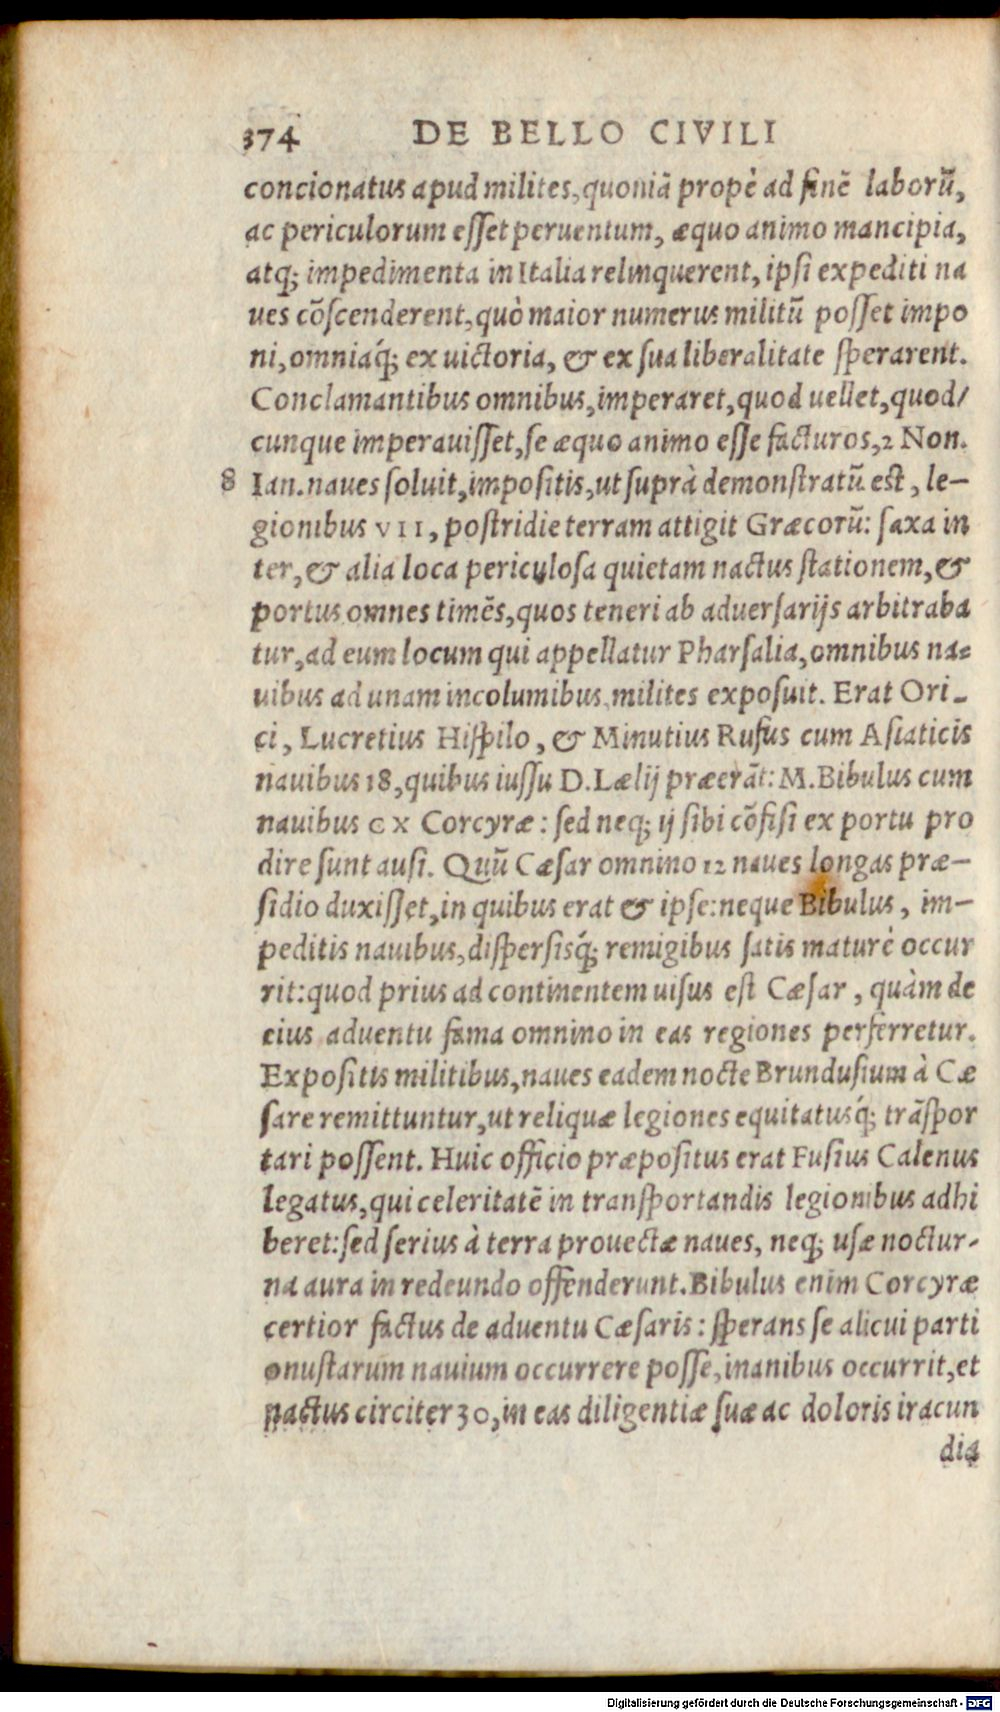 374 DE BELLO CIVILI
concionatus apud milites, quoniã propè ad finẽ laborũ,
ac periculorum eſſet peruentum, æquo animo mancipia,
atq; impedimenta in Italia relinquerent, ipſi expediti na
ues cõſcenderent, quò maior numerus militũ poſſet impo
ni, omniaq́; ex uictoria, & ex ſua liberalitate ſperarent.
Conclamantibus omnibus, imperaret, quod uellet, quod/
cunque imperauiſſet, ſe æquo animo eſſe facturos, 2 Non.
8 Ian. naues ſoluit, impoſitis, ut ſuprà demonſtratũ eſt, le-
gionibus VII, poſtridie terram attigit Græcorũ: ſaxa in
ter, & alia loca periculoſa quietam nactus ſtationem, &
portus omnes timẽs, quos teneri ab aduerſarijs arbitraba
tur, ad eum locum qui appellatur Pharſalia, omnibus na-
uibus ad unam incolumibus, milites expoſuit. Erat Ori-
ci, Lucretius Hiſpilo, & Minutius Rufus cum Aſiaticis
nauibus 18, quibus iuſſu D. Lælij præerãt: M. Bibulus cum
nauibus CX Corcyræ: ſed neq; ij ſibi cõfiſi ex portu pro
dire ſunt auſi. Quũ Cæſar omnino 12 naues longas præ-
ſidio duxiſſet, in quibus erat & ipſe: neque Bibulus, im-
peditis nauibus, diſperſisq́; remigibus ſatis maturè occur
rit: quod prius ad continentem uiſus eſt Cæſar, quàm de
eius aduentu fama omnino in eas regiones perferretur.
Expoſitis militibus, naues eadem nocte Brunduſium à Cæ
ſare remittuntur, ut reliquæ legiones equitatusq́; trãſpor
tari poſſent. Huic officio præpoſitus erat Fuſius Calenus
legatus, qui celeritatẽ in tranſportandis legionibus adhi
beret: ſed ſerius à terra prouectæ naues, neq; uſæ noctur-
na aura in redeundo offenderunt. Bibulus enim Corcyræ
certior factus de aduentu Cæſaris: ſperans ſe alicui parti
onuſtarum nauium occurrere poſſe, inanibus occurrit, et
nactus circiter 30, in eas diligentiæ ſuæ ac doloris iracun
dia
Digitalisierung gefördert durch die Deutsche Forschungsgemeinschaft - DFG